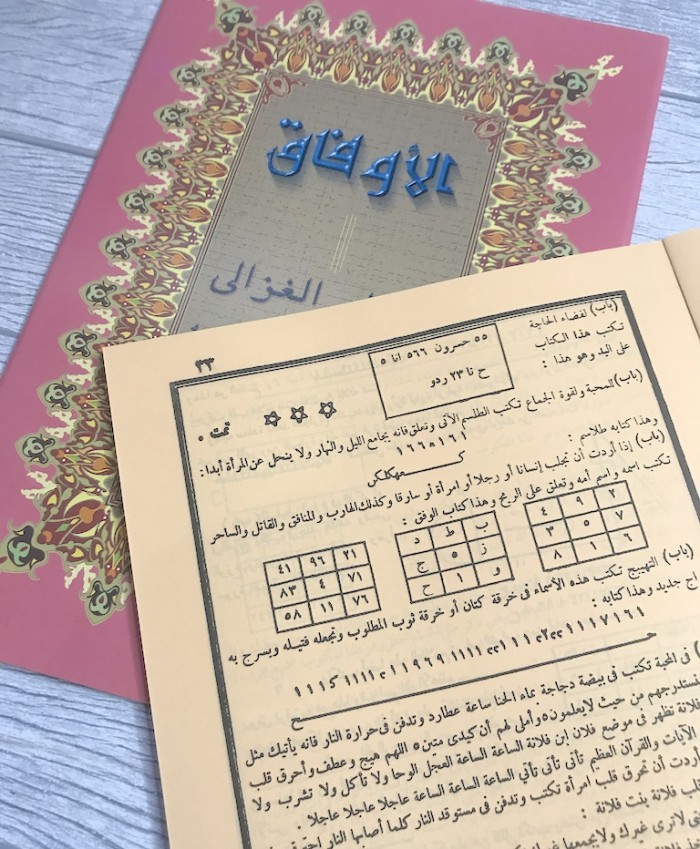 الأوفاق
الغزالى
٢٣
(باب) لقضاء الحاجة
تكتب هذا الكتاب
على اليد وهو هذا :
٥٥ حسرون ٥٦٦ انا ٥
ح نا ٢٣ ردو
(باب) للمحبة ولقوة الجماع تكتب الطلسم الآتى وتعلق فانه يجامع الليل والنهار ولا ينحل عن المرأة أبدا :
تمت .
وهذا كتابه طلاسم :
(باب) إذا أردت أن تجلب إنسانا أو رجلا أو امرأة أو سارقا وكذلك الهارب والمنافق والقاتل والساحر
تكتب اسمه واسم أمه وتعلق على الريح وهذا كتاب الوفق :
٤ ٩ ٢
٣ ٥ ٧
٨ ١ ٦
د ط ب
ج ٥ ز
ح ١ و
٤١ ٩٦ ٢١
٨٣ ٤ ٧١
٥٨ ١١ ٧٦
(باب) التهييج تكتب هذه الأسماء فى خرقة كتان أو خرقة ثوب المطلوب وتجعله فتيله ويسرج به
اج جديد وهذا كتابه :
) فى المحبة تكتب فى بيضة دجاجة بماء الحنا ساعة عطارد وتدفن فى حرارة النار فانه يأتيك مثل
سنستدرجهم من حيث لا يعلمون ه وأملى لهم أن كيدى متين ه اللهم هيج وعطف وأحرق قلب
فلانة تظهر فى موضع فلان ابن فلانة الساعة الساعة العجل الوحا ولا تأكل ولا تشرب ولا
الآيات والقرآن العظيم تأتى تأتى تأتي الساعة الساعة الساعة عاجلا عاجلا عاجلا .
اردت أن تحرق قلب امرأة تكتب وتدفن فى مستوقد النار كلما أصابها النار
قلب فلانة بنت فلانة :